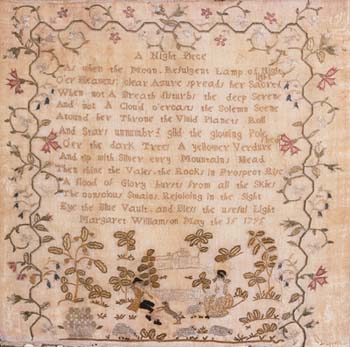 A Night Piece
As when the Moon, Refulgent Lamp of Night
O'er Heavens clear Azure spreads her Sacred light
When not A Breath disturbs the deep Serene
And not A Cloud o'ercasts the Solemn Scene
Around her Throne the Vivid Planets Roll
And Stars unnumber'd gild the glowing Pole
O'er the dark Trees A yellower Verdure shed
And tip with Silver evry Mountains Head
Then shine the Vales, the Rocks in Prospect Rise
A flood of Glory bursts from all the Skies
The conscious Swains, Rejoicing in the Sight
Eye the Blue Vault, and Bless the useful Light
Margaret Williamson May the 15 1795